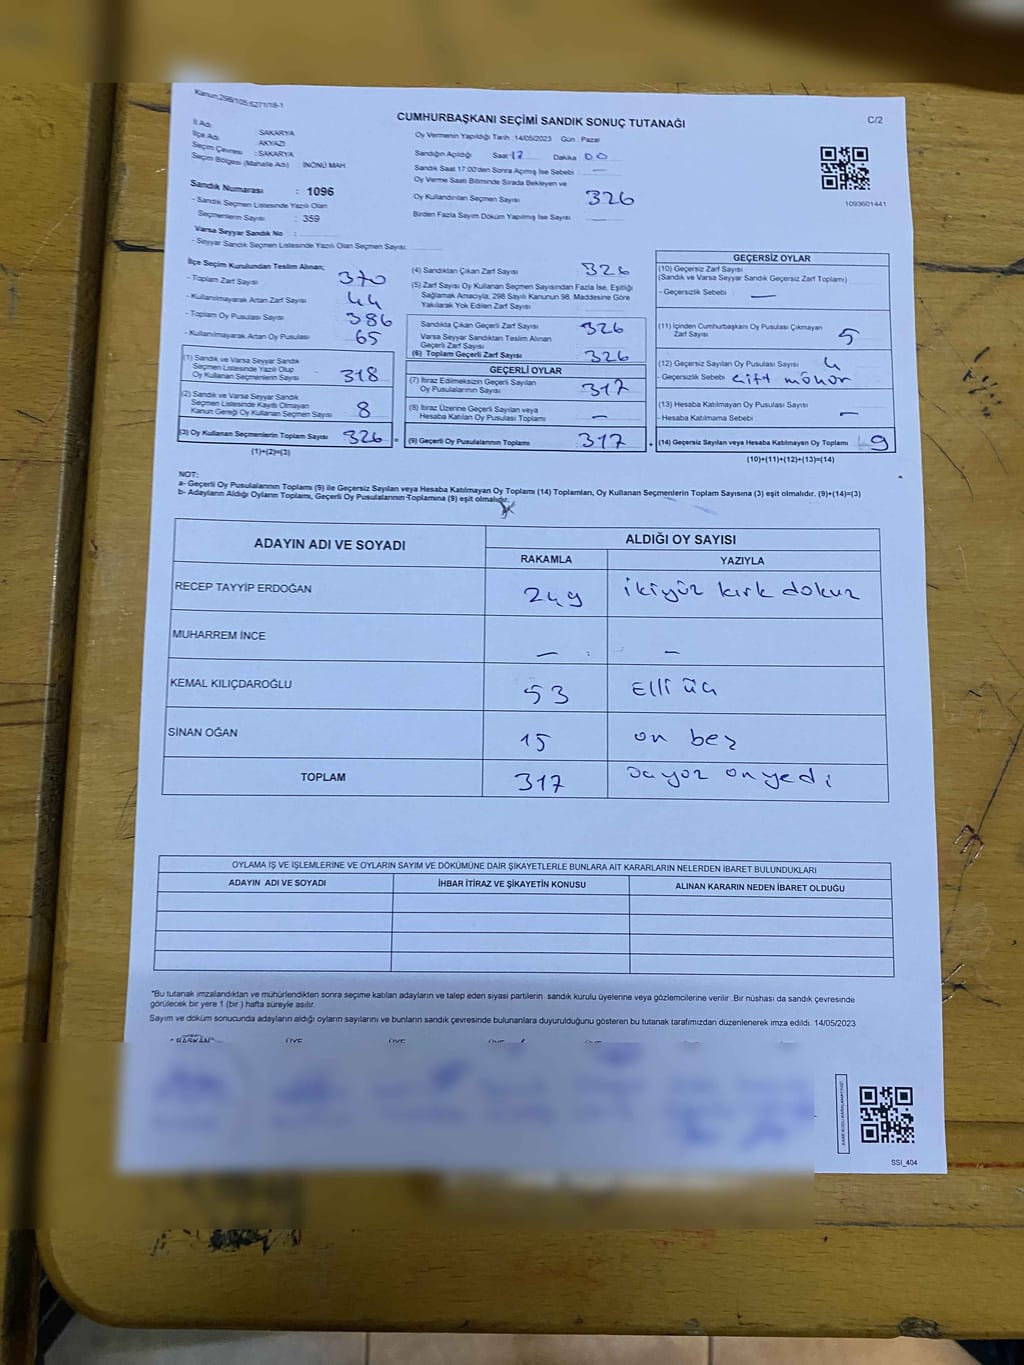 Kanun:298/105;6271/18-1
CUMHURBAŞKANI SEÇİMİ SANDIK SONUÇ TUTANAĞI
C/2
İl Adı : SAKARYA
İlçe Adı : AKYAZI
Seçim Çevresi : SAKARYA
Seçim Bölgesi (Mahalle Adı) : İNÖNÜ MAH
Sandık Numarası : 1096
- Sandık Seçmen Listesinde Yazılı Olan
Seçmenlerin Sayısı : 359
Varsa Seyyar Sandık No :
- Seyyar Sandık Seçmen Listesinde Yazılı Olan Seçmen Sayısı:
Oy Vermenin Yapıldığı Tarih :14/05/2023 Gün : Pazar
Sandığın Açıldığı Saat 17 Dakika 00
Sandık Saat 17:00'den Sonra Açımış İse Sebebi : —
Oy Verme Saati Bitiminde Sırada Bekleyen ve
Oy Kullandırılan Seçmen Sayısı 326
Birden Fazla Sayım Döküm Yapılmış İse Sayısı
1093601441
İlçe Seçim Kurulundan Teslim Alınan;
- Toplam Zarf Sayısı : 370
- Kullanılmayarak Artan Zarf Sayısı : 44
- Toplam Oy Pusulası Sayısı : 386
- Kullanılmayarak Artan Oy Pusulası : 65
(1) Sandık ve Varsa Seyyar Sandık
Seçmen Listesinde Yazılı Olup
Oy Kullanan Seçmenlerin Sayısı : 318
(2) Sandık ve Varsa Seyyar Sandık
Seçmen Listesinde Kayıtlı Olmayan
Kanun Gereği Oy Kullanan Seçmen Sayısı : 8
(3) Oy Kullanan Seçmenlerin Toplam Sayısı : 326 =
(1)+(2)=(3)
(4) Sandıktan Çıkan Zarf Sayısı : 326
(5) Zarf Sayısı Oy Kullanan Seçmen Sayısından Fazla İse, Eşitliği
Sağlamak Amacıyla, 298 Sayılı Kanunun 98. Maddesine Göre
Yakılarak Yok Edilen Zarf Sayısı :
Sandıkta Çıkan Geçerli Zarf Sayısı : 326
Varsa Seyyar Sandıktan Teslim Alınan
Geçerli Zarf Sayısı :
(6) Toplam Geçerli Zarf Sayısı : 326
GEÇERLİ OYLAR
(7) İtiraz Edilmeksizin Geçerli Sayılan
Oy Pusulalarının Sayısı : 317
(8) İtiraz Üzerine Geçerli Sayılan veya
Hesaba Katılan Oy Pusulası Toplamı : —
(9) Geçerli Oy Pusulalarının Toplamı : 317 +
GEÇERSİZ OYLAR
(10) Geçersiz Zarf Sayısı
(Sandık ve Varsa Seyyar Sandık Geçersiz Zarf Toplamı)
- Geçersizlik Sebebi : —
(11) İçinden Cumhurbaşkanı Oy Pusulası Çıkmayan
Zarf Sayısı : 5
(12) Geçersiz Sayılan Oy Pusulası Sayısı : 4
- Geçersizlik Sebebi : çift mühür
(13) Hesaba Katılmayan Oy Pusulası Sayısı :
- Hesaba Katılmama Sebebi : —
(14) Geçersiz Sayılan veya Hesaba Katılmayan Oy Toplamı : 9
(10)+(11)+(12)+(13)=(14)
NOT:
a- Geçerli Oy Pusulalarının Toplamı (9) ile Geçersiz Sayılan veya Hesaba Katılmayan Oy Toplamı (14) Toplamları, Oy Kullanan Seçmenlerin Toplam Sayısına (3) eşit olmalıdır. (9)+(14)=(3)
b- Adayların Aldığı Oyların Toplamı, Geçerli Oy Pusulalarının Toplamına (9) eşit olmalıdır.
ADAYIN ADI VE SOYADI
ALDIĞI OY SAYISI
RAKAMLA YAZIYLA
RECEP TAYYİP ERDOĞAN 249 ikiyüz kırk dokuz
MUHARREM İNCE — : —
KEMAL KILIÇDAROĞLU 53 Elli üç
SİNAN OĞAN 15 on beş
TOPLAM 317 üçyüz onyedi
OYLAMA İŞ VE İŞLEMLERİNE VE OYLARIN SAYIM VE DÖKÜMÜNE DAİR ŞİKAYETLERLE BUNLARA AİT KARARLARIN NELERDEN İBARET BULUNDUKLARI
ADAYIN ADI VE SOYADI İHBAR İTİRAZ VE ŞİKAYETİN KONUSU ALINAN KARARIN NEDEN İBARET OLDUĞU
"Bu tutanak imzalandıktan ve mühürlendikten sonra seçime katılan adayların ve talep eden siyasi partilerin sandık kurulu üyelerine veya gözlemcilerine verilir .Bir nüshası da sandık çevresinde
görülecek bir yere 1 (bir ) hafta süreyle asılır.
Sayım ve döküm sonucunda adayların aldığı oyların sayılarını ve bunların sandık çevresinde bulunanlara duyurulduğunu gösteren bu tutanak tarafımızdan düzenlenerek imza edildi. 14/05/2023
BAŞKAN ÜYE ÜYE ÜYE ÜYE
SSI_404